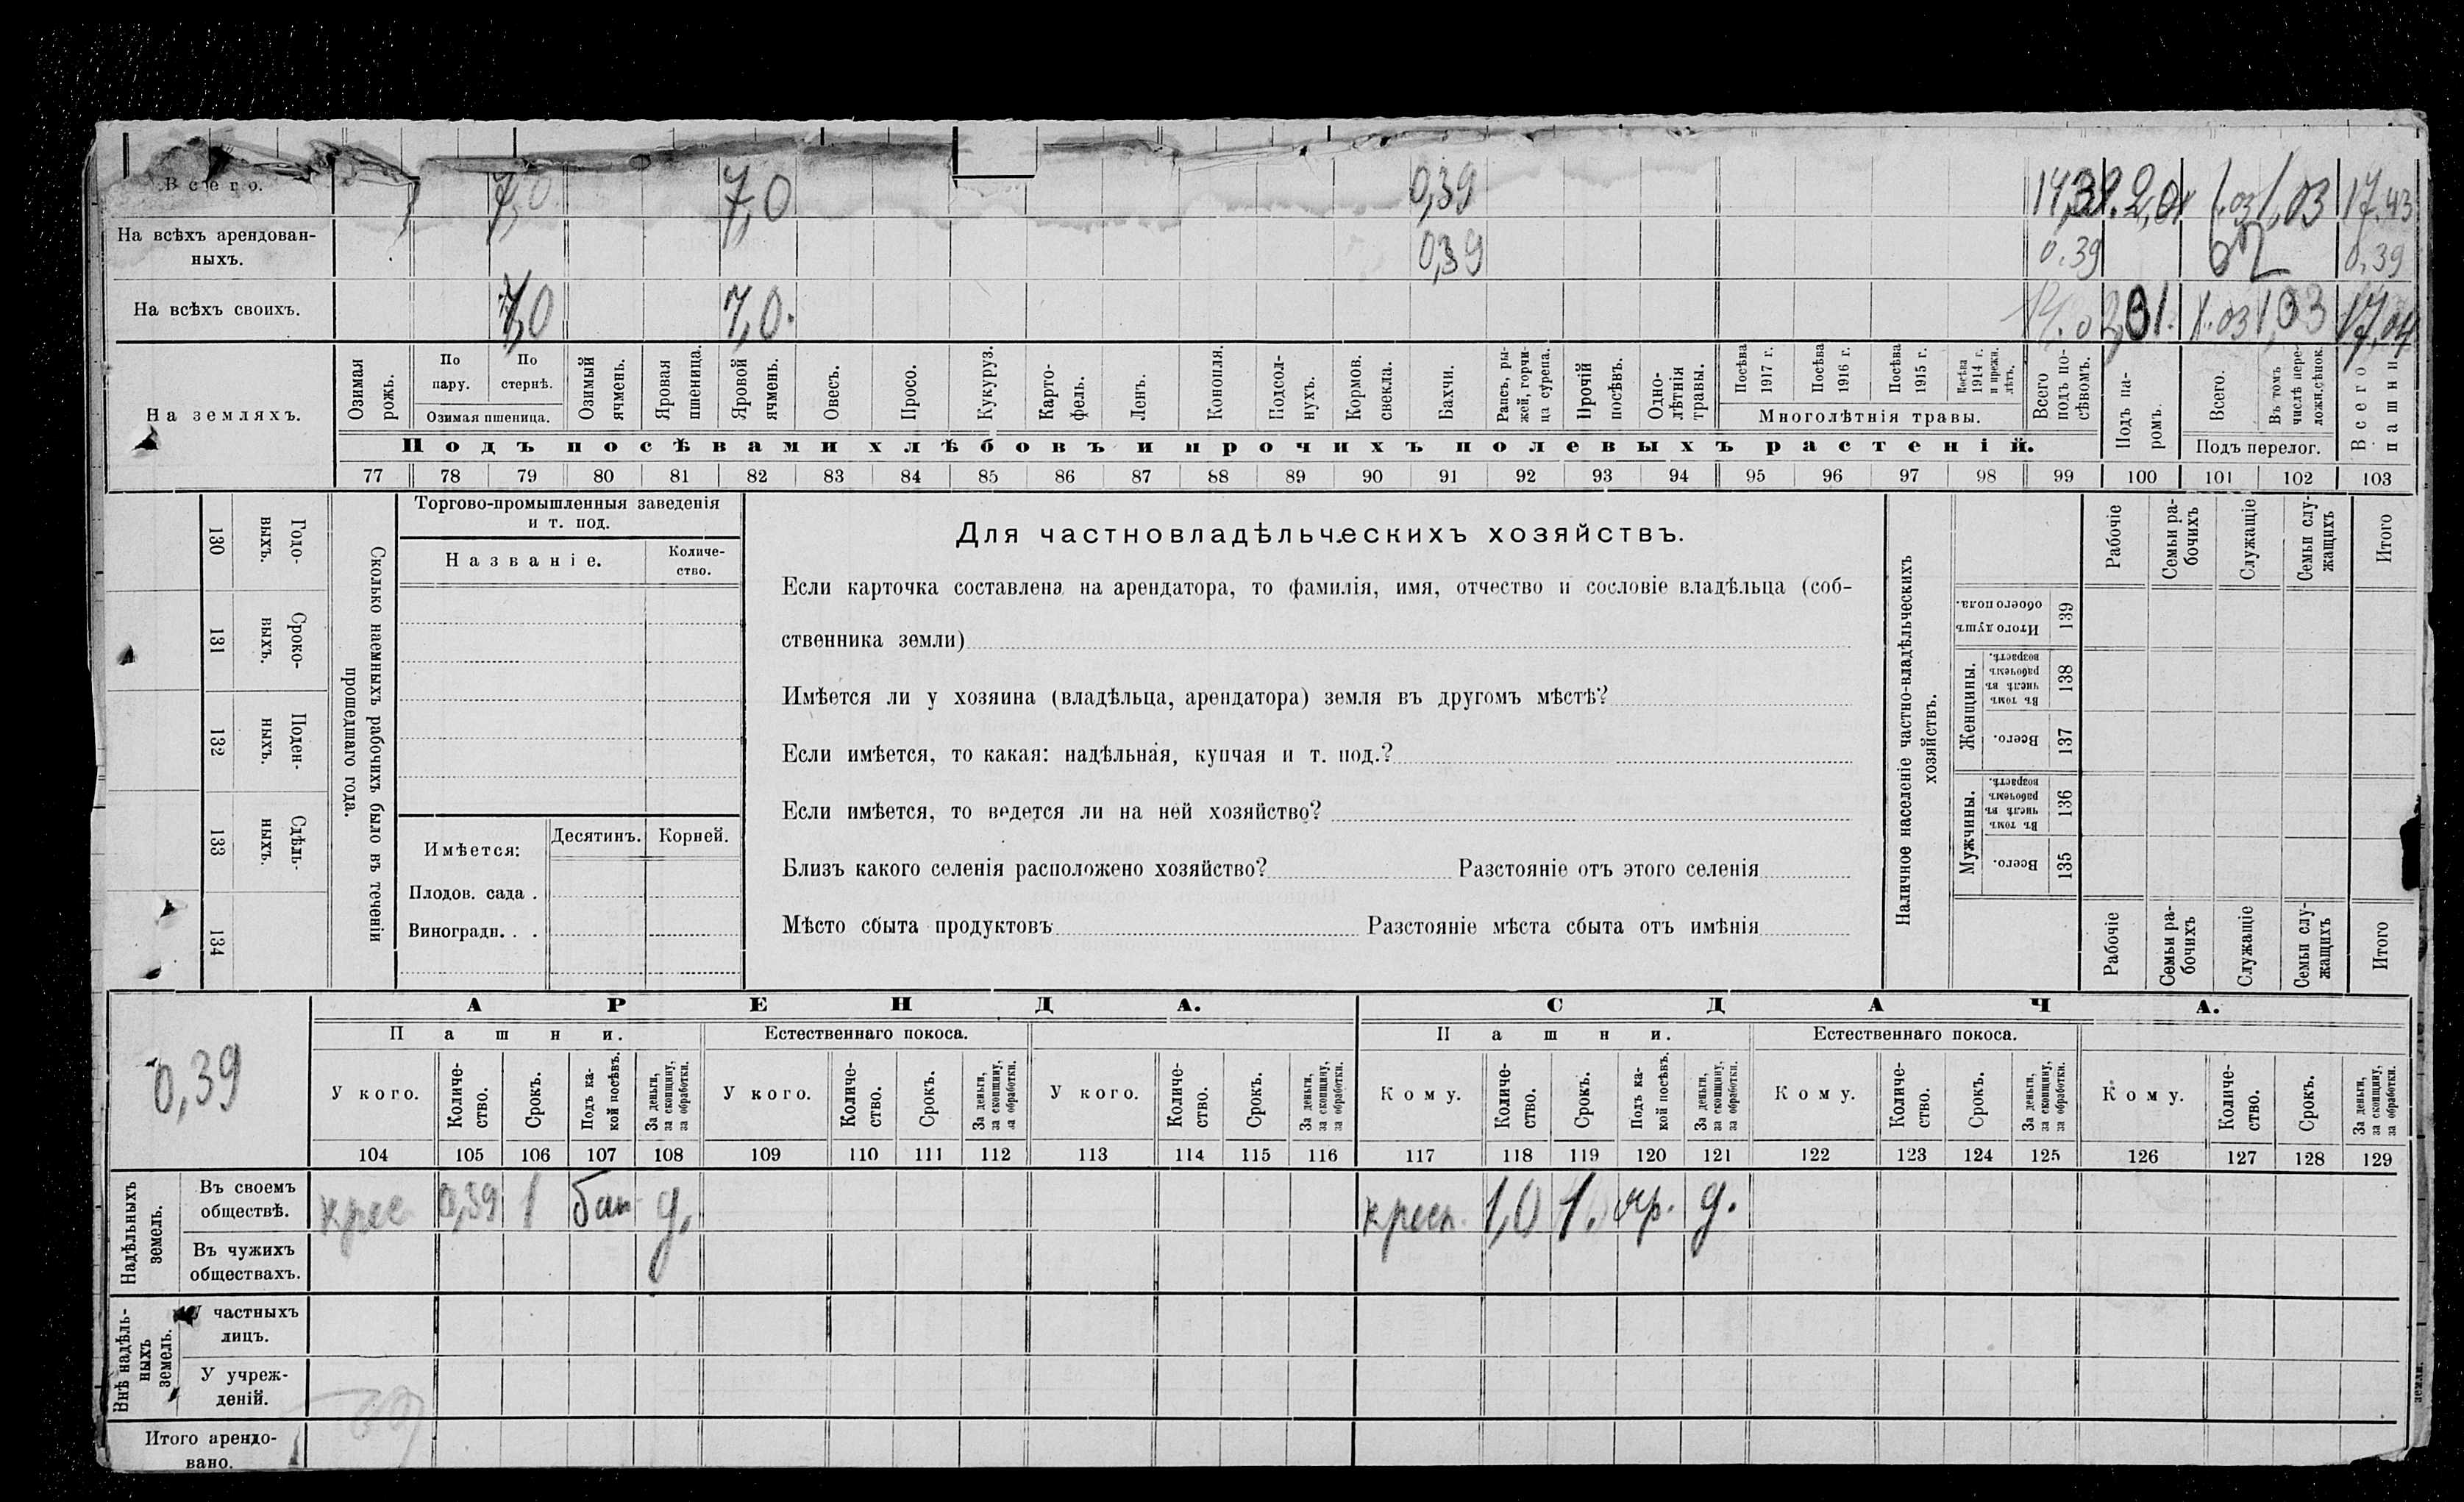 Всего. 7,0 7,0 0,39 14,39. 2,01 1.03 1,03 17.43
На всѣхъ арендован-
ныхъ. 0,39 0.39 0.39
На всѣхъ своихъ. 7,0 7,0. 14.0 2,01. 1.03 1,03 17,04
На земляхъ.
Озимая
рожь.
По
пару.
По
стернѣ.
Озимая пшеница.
Озимый
ячмень.
Яровая
пшеница.
Яровой
ячмень.
Овесъ.
Просо.
Кукуруз.
Карто-
фель.
Ленъ.
Конопля.
Подсол-
нухъ.
Кормов.
свекла.
Бахчи.
Рапсъ, ры-
жей, горчи-
ца сурепа.
Прочій
посѣвъ.
Одно-
лѣтнія
травы.
Посѣва
1917 г.
Посѣва
1916 г.
Посѣва
1915 г.
Посѣва
1914 г.
и прежн.
лѣтъ.
Многолѣтнія травы.
Всего
подъ по-
сѣвомъ.
Подъ посѣвами хлѣбовъ и прочихъ полевыхъ растеній.
Подъ па-
ромъ.
Всего.
Въ томъ
числѣ пере-
ложн.сѣнок.
Подъ перелог.
Всего
пашни.
77 78 79 80 81 82 83 84 85 86 87 88 89 90 91 92 93 94 95 96 97 98 99 100 101 102 103
130 Годо-
выхъ.
131 Сроко-
выхъ.
132 Поден-
ныхъ.
133 Сдѣль-
ныхъ.
134
Сколько наемныхъ рабочихъ было въ теченіи
прошедшаго года.
Торгово-промышленныя заведенія
и т. под.
Названіе.
Количе-
ство.
Имѣется: Десятинъ. Корней.
Плодов. сада .
Виноградн. . .
Для частновладѣльческихъ хозяйствъ.
Если карточка составлена на арендатора, то фамилія, имя, отчество и сословіе владѣльца (соб-
ственника земли)
Имѣется ли у хозяина (владѣльца, арендатора) земля въ другомъ мѣстѣ?
Если имѣется, то какая: надѣльная, купчая и т. под.?
Если имѣется, то ведется ли на ней хозяйство?
Близъ какого селенія расположено хозяйство? Разстояніе отъ этого селенія
Мѣсто сбыта продуктовъ Разстояніе мѣста сбыта отъ имѣнія
Наличное населеніе частно-владѣльческихъ
хозяйствъ.
Рабочіе
Семьи ра-
бочихъ
Служащіе
Семьи слу-
жащихъ
Итого
Итого душъ
обоего пола.
139
Женщины.
Въ томъ
числѣ въ
рабочемъ
возрастѣ.
138
Всего.
137
Мужчины.
Въ томъ
числѣ въ
рабочемъ
возрастѣ.
136
Всего.
135
Рабочіе
Семьи ра-
бочихъ
Служащіе
Семьи слу-
жащихъ
Итого
0,39
АРЕНДА. СДАЧА.
Пашни. Естественнаго покоса. Пашни. Естественнаго покоса.
У кого.
Количе-
ство.
Срокъ.
Подъ ка-
кой посѣвъ.
За деньги,
за скопщину,
за обработки.
У кого.
Количе-
ство.
Срокъ.
За деньги,
за скопщину,
за обработки.
У кого.
Количе-
ство.
Срокъ.
За деньги,
за скопщину,
за обработки.
Кому.
Количе-
ство.
Срокъ.
Подъ ка-
кой посѣвъ.
За деньги,
за скопщину,
за обработки.
Кому.
Количе-
ство.
Срокъ.
За деньги,
за скопщину,
за обработки.
Кому.
Количе-
ство.
Срокъ.
За деньги,
за скопщину,
за обработки.
104 105 106 107 108 109 110 111 112 113 114 115 116 117 118 119 120 121 122 123 124 125 126 127 128 129
Надѣльныхъ
земель.
Въ своемъ
обществѣ. крес 0,39 1 д. кресп. 1,0 1. яр. д.
Въ чужихъ
обществахъ.
Внѣ надѣль-
ныхъ
земель.
У частныхъ
лицъ.
У учреж-
деній.
Итого арендо-
вано.
земли.